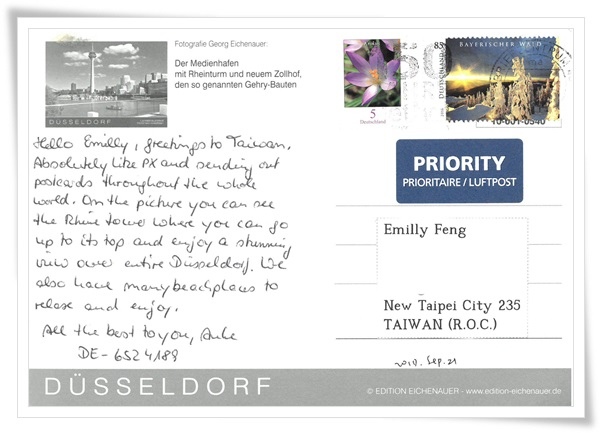 Fotografie Georg Eichenauer:
Der Medienhafen
mit Rheinturm und neuem Zollhof,
den so genannten Gehry-Bauten
DÜSSELDORF
Hello Emilly, greetings to Taiwan.
Absolutely like PX and sending out
postcards throughout the whole
world. On the picture you can see
the Rhine tower where you can go
up to its top and enjoy a stunning
view over entire Düsseldorf. We
also have many beachplaces to
relaxe and enjoy.
All the best to you, Anke
DE-6524189
5
Deutschland
85
BAYERISCHER WALD
DEUTSCHLAND
PRIORITY
PRIORITAIRE / LUFTPOST
Emilly Feng
New Taipei City 235
TAIWAN (R.O.C.)
Sep. 21
DÜSSELDORF
© EDITION EICHENAUER - www.edition-eichenauer.de